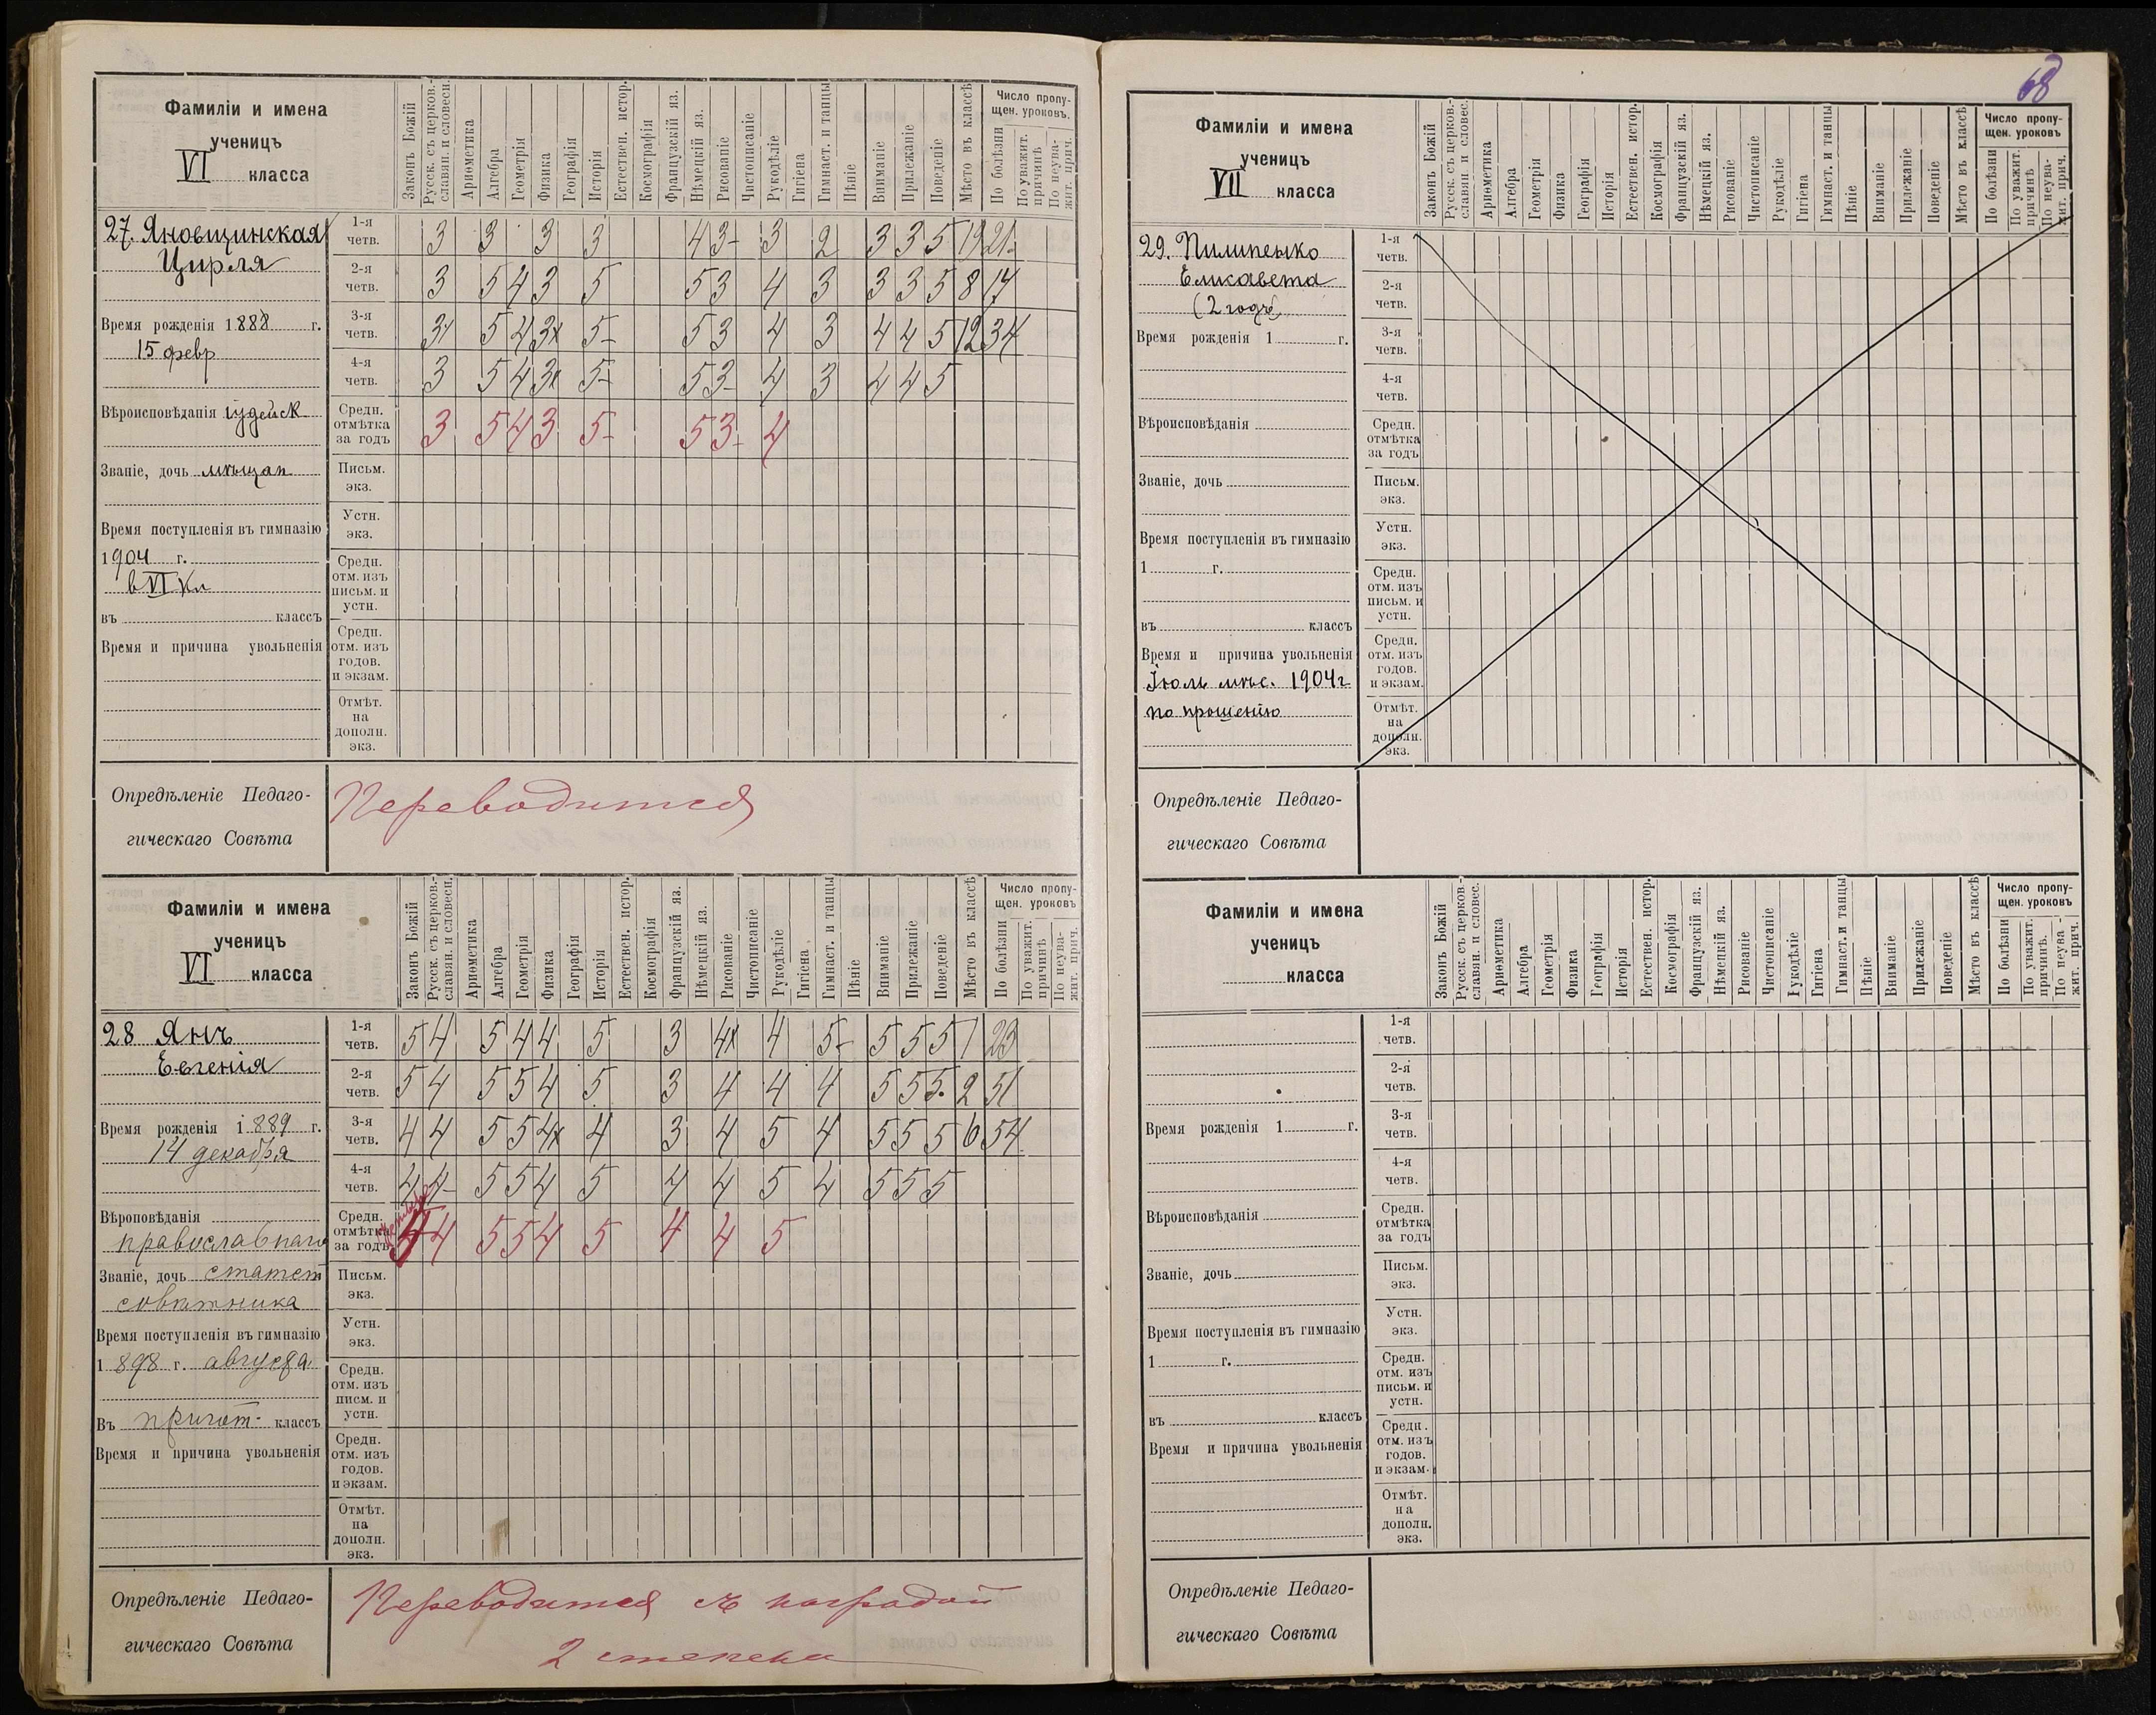 Фамиліи и имена
ученицъ
VI класса
Законъ Божій
Русск. съ церков.-
славян. и словесн.
Ариѳметика
Алгебра
Геометрія
Физика
Географія
Исторія
Естествен. истор.
Космографія
Французскій яз.
Нѣмецкій яз.
Рисованіе
Чистописаніе
Рукодѣліе
Гигіена
Гимнаст. и танцы
Пѣніе
Вниманіе
Прилежаніе
Поведеніе
Мѣсто въ классѣ
Число пропу-
щен. уроковъ.
По болѣзни
По уважит.
причинѣ
По неува-
жит. прич.
27. Яновщинская
Цирля
Время рожденія 1888 г.
15 февр
Вѣроисповѣданія іудейск
Званіе, дочь мѣщан
Время поступленія въ гимназію
1904 г.
в VI Кл
въ классъ
Время и причина увольненія
1-я четв. 3 3 3 3 4 3- 3 2 3 3 5 19 21
2-я четв. 3 5 4 3 5 5 3 4 3 3 3 5 8 17
3-я четв. 3 5 4 3 5- 5 3 4 3 4 4 5 12 34
4-я четв. 3 5 4 3 5- 5 3- 4 3 4 4 5
Средн.
отмѣтка
за годъ 3 5 4 3 5- 5 3- 4
Письм.
экз.
Устн.
экз.
Средн.
отм. изъ
письм. и
устн.
Средн.
отм. изъ
годов.
и экзам.
Отмѣт.
на
дополн.
экз.
Опредѣленіе Педаго-
гическаго Совѣта
Переводится
Фамиліи и имена
ученицъ
VI класса
Законъ Божій
Русск. съ церков.-
славян. и словесн.
Ариѳметика
Алгебра
Геометрія
Физика
Географія
Исторія
Естествен. истор.
Космографія
Французскій яз.
Нѣмецкій яз.
Рисованіе
Чистописаніе
Рукодѣліе
Гигіена
Гимнаст. и танцы
Пѣніе
Вниманіе
Прилежаніе
Поведеніе
Мѣсто въ классѣ
Число пропу-
щен. уроковъ
По болѣзни
По уважит.
причинѣ
По неува-
жит. прич.
28 Янъ
Евгенія
Время рожденія 1889 г.
14 декабря
Вѣроповѣданія
православнаго
Званіе, дочь статск
совѣтника
Время поступленія въ гимназію
1898 г. августа
Въ пригот. классъ
Время и причина увольненія
1-я четв. 5 4 5 4 4 5 3 4 4 5- 5 5 5 1 23
2-я четв. 5 4 5 5 4 5 3 4 4 4 5 5 5 2 51
3-я четв. 4 4 5 5 4 4 3 4 5 4 5 5 5 6 54
4-я четв. 4 4- 5 5 4 5 4 4 5 4 5 5 5
Средн.
отмѣтка
за годъ 4 4 5 5 4 5 4 4 5
Письм.
экз.
Устн.
экз.
Средн.
отм. изъ
писм. и
устн.
Средн.
отм. изъ
годов.
и экзам.
Отмѣт.
на
дополн.
экз.
Опредѣленіе Педаго-
гическаго Совѣта
Переводится съ наградой
2 степени
68
Фамиліи и имена
ученицъ
VII класса
Законъ Божій
Русск. съ церков.-
славян. и словес.
Ариѳметика
Алгебра
Геометрія
Физика
Географія
Исторія
Естествен. истор.
Космографія
Французскій яз.
Нѣмецкій яз.
Рисованіе
Чистописаніе
Рукодѣліе
Гигіена
Гимнаст. и танцы
Пѣніе
Вниманіе
Прилежаніе
Поведеніе
Мѣсто въ классѣ
Число пропу-
щен. уроковъ
По болѣзни
По уважит.
причинѣ
По неува-
жит. прич.
29. Пилипенко
Елисавета
(2 годъ)
Время рожденія 1 г.
Вѣроисповѣданія
Званіе, дочь
Время поступленія въ гимназію
1 г.
въ классъ
Время и причина увольненія
Іюль мѣс. 1904 г
по прошенію
1-я
четв.
2-я
четв.
3-я
четв.
4-я
четв.
Средн.
отмѣтка
за годъ
Письм.
экз.
Устн.
экз.
Средн.
отм. изъ
письм. и
устн.
Средн.
отм. изъ
годов.
и экзам.
Отмѣт.
на
дополн.
экз.
Опредѣленіе Педаго-
гическаго Совѣта
Фамиліи и имена
ученицъ
класса
Законъ Божій
Русск. съ церков.-
славян. и словес.
Ариѳметика
Алгебра
Геометрія
Физика
Географія
Исторія
Естествен. истор.
Космографія
Французскій яз.
Нѣмецкій яз.
Рисованіе
Чистописаніе
Рукодѣліе
Гигіена
Гимнаст. и танцы
Пѣніе
Вниманіе
Прилежаніе
Поведеніе
Мѣсто въ классѣ
Число пропу-
щен. уроковъ
По болѣзни
По уважит.
причинѣ.
По неува-
жит. прич.
Время рожденія 1 г.
Вѣроисповѣданія
Званіе, дочь
Время поступленія въ гимназію
1 г.
въ классъ
Время и причина увольненія
1-я
четв.
2-я
четв.
3-я
четв.
4-я
четв.
Средн.
отмѣтка
за годъ
Письм.
экз.
Устн.
экз.
Средн.
отм. изъ
письм. и
устн.
Средн.
отм. изъ
годов.
и экзам.
Отмѣт.
на
дополн.
экз.
Опредѣленіе Педаго-
гическаго Совѣта